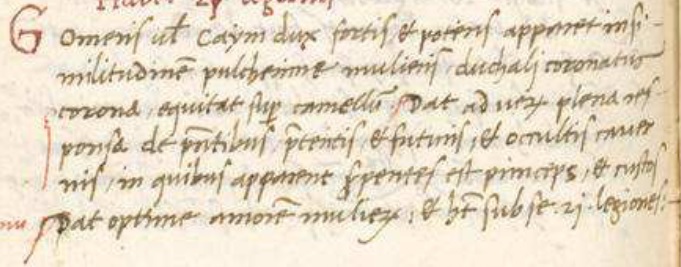 Habet 27 legiones
Gomeris ul Caym dux fortis & potens apparet in si-
militudinē pulcherrime mulieris, duchali coronatus
corona, equitat sup camellū. Dat ad uerx plena res-
ponsa de pñtibus, p̄teritis, & futuris, & occultis cauer
nis, in quibus apparent s̄pentes est princeps, & custos
Dat optime amorē mulierx, & ht̄ sub se. 27. legiones.